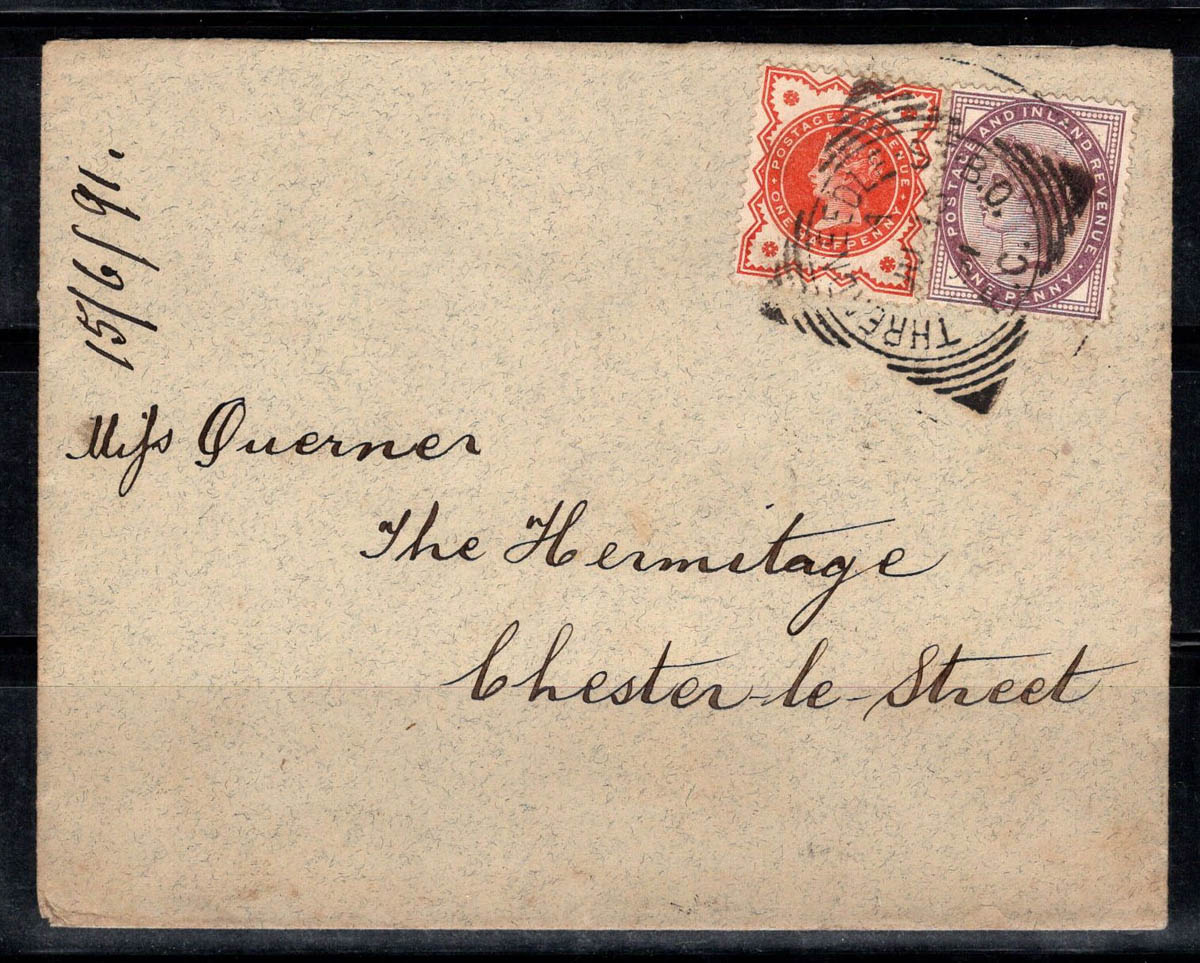 15/6/91.
POSTAGE & REVENUE
ONE HALFPENNY
POSTAGE AND INLAND REVENUE
ONE PENNY
B.O.
Miſs Querner
The Hermitage
Chester-le-Street